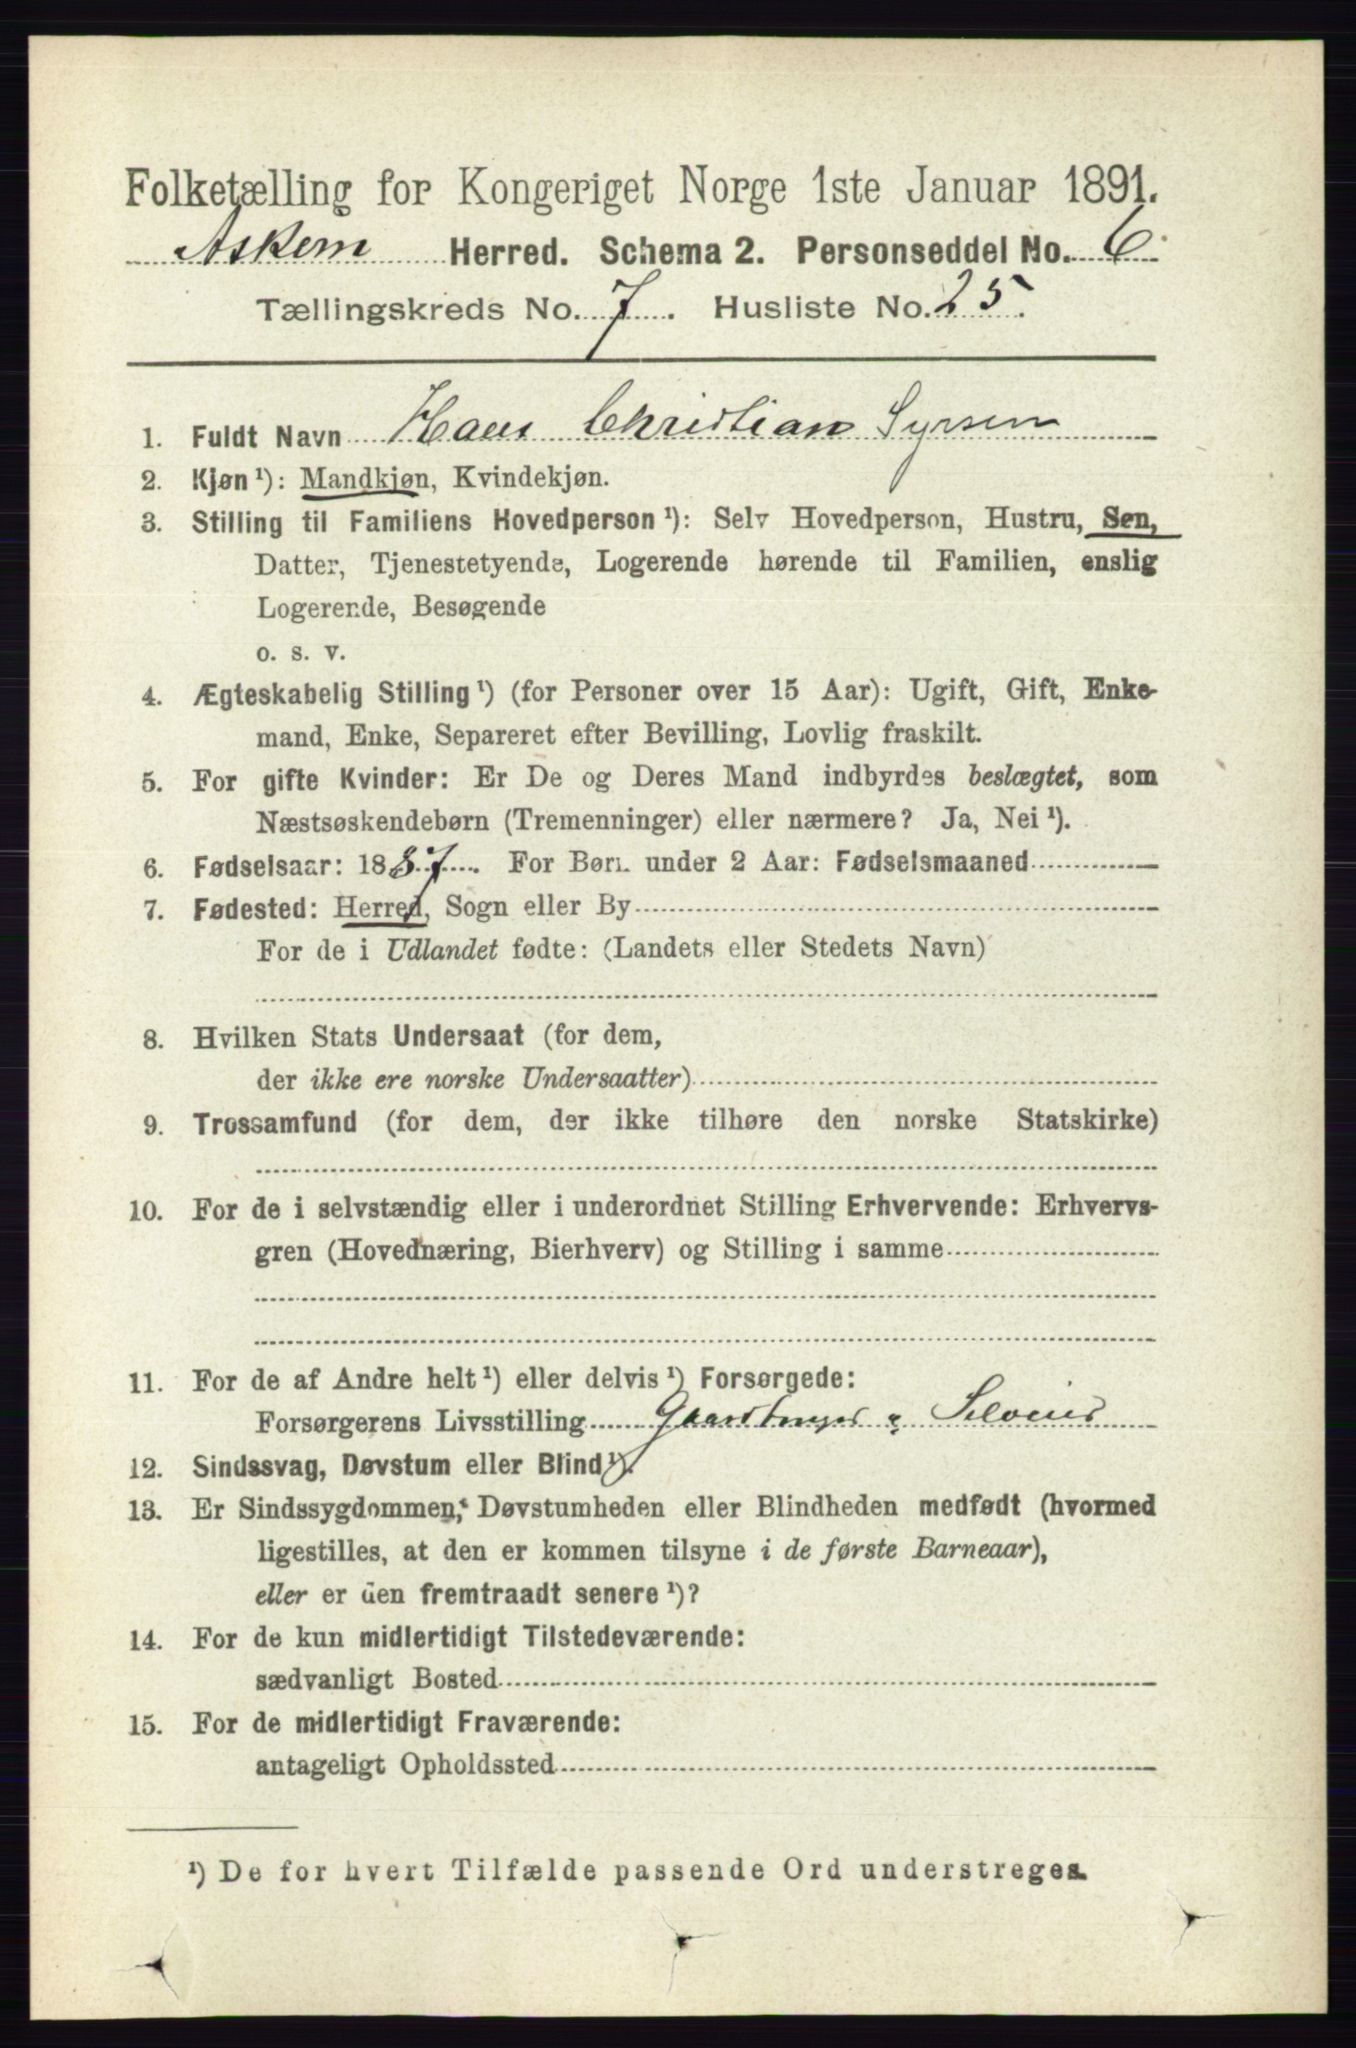 Folketælling for Kongeriget Norge 1ste Januar 1891.
Askem Herred. Schema 2. Personseddel No. 6.
Tællingskreds No. 7. Husliste No. 25.
1. Fuldt Navn Hans Christian Syrsen
2. Kjøn¹): Mandkjøn, Kvindekjøn.
3. Stilling til Familiens Hovedperson¹): Selv Hovedperson, Hustru, Søn,
Datter, Tjenestetyende, Logerende hørende til Familien, enslig
Logerende, Besøgende
o. s. v.
4. Ægteskabelig Stilling¹) (for Personer over 15 Aar): Ugift, Gift, Enke-
mand, Enke, Separeret efter Bevilling, Lovlig fraskilt.
5. For gifte Kvinder: Er De og Deres Mand indbyrdes beslægtet, som
Næstsøskendebørn (Tremenninger) eller nærmere? Ja, Nei¹).
6. Fødselsaar: 1887. For Børn under 2 Aar: Fødselsmaaned
7. Fødested: Herred, Sogn eller By
For de i Udlandet fødte: (Landets eller Stedets Navn)
8. Hvilken Stats Undersaat (for dem,
der ikke ere norske Undersaatter)
9. Trossamfund (for dem, der ikke tilhøre den norske Statskirke)
10. For de i selvstændig eller i underordnet Stilling Erhvervende: Erhvervs-
gren (Hovednæring, Bierhverv) og Stilling i samme
11. For de af Andre helt¹) eller delvis¹) Forsørgede:
Forsørgerens Livsstilling Gaardbruger
12. Sindssvag, Døvstum eller Blind¹).
13. Er Sindssygdommen, Døvstumheden eller Blindheden medfødt (hvormed
ligestilles, at den er kommen tilsyne i de første Barneaar),
eller er den fremtraadt senere¹)?
14. For de kun midlertidigt Tilstedeværende:
sædvanligt Bosted
15. For de midlertidigt Fraværende:
antageligt Opholdssted
¹) De for hvert Tilfælde passende Ord understreges.